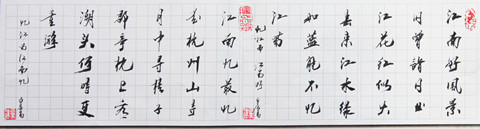 江南好風景
旧曾諳日出
江花红似火
春来江水緑
如蓝能不忆
江南
忆江南 江南好
江南忆最忆
是杭州山寺
月中寻桂子
郡亭枕上看
潮头何時更
重游
忆江南 江南忆